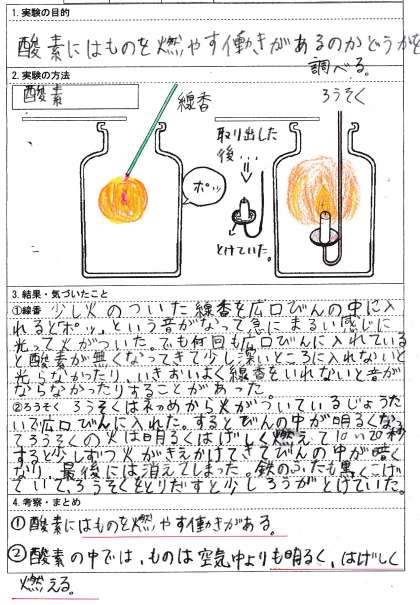 1. 実験の目的
酸素にはものを燃やす働きがあるのかどうかを
調べる。
2. 実験の方法
酸素
線香
ろうそく
取り出した
後...
ポッ
とけていた。
3. 結果・気づいたこと
①線香 少し火のついた線香を広口びんの中に入
れると"ポッ"という音がなって急にまるい感じに
光って火がついた。でも何回も広口びんに入れている
と酸素が無くなってきて少し深いところに入れないと
光らなかったり、いきおいよく線香をいれないと音が
ならなかったりすることがあった。
②ろうそく ろうそくはねっめから火がついているじょうた
いで広口びんに入れた。するとびんの中が明るくなっ
てろうそくの火は明るくはげしく燃えて10〜20秒
すると少しずつ火がきえかけてきてびんの中が暗く
なり、最後には消えてしまった。鉄のふたも黒くこげ
ていて、ろうそくをとりだすと少しろうがとけていた。
4. 考察・まとめ
①酸素にはものを燃やす働きがある。
②酸素の中では、ものは空気中よりも明るく、はげしく
燃える。